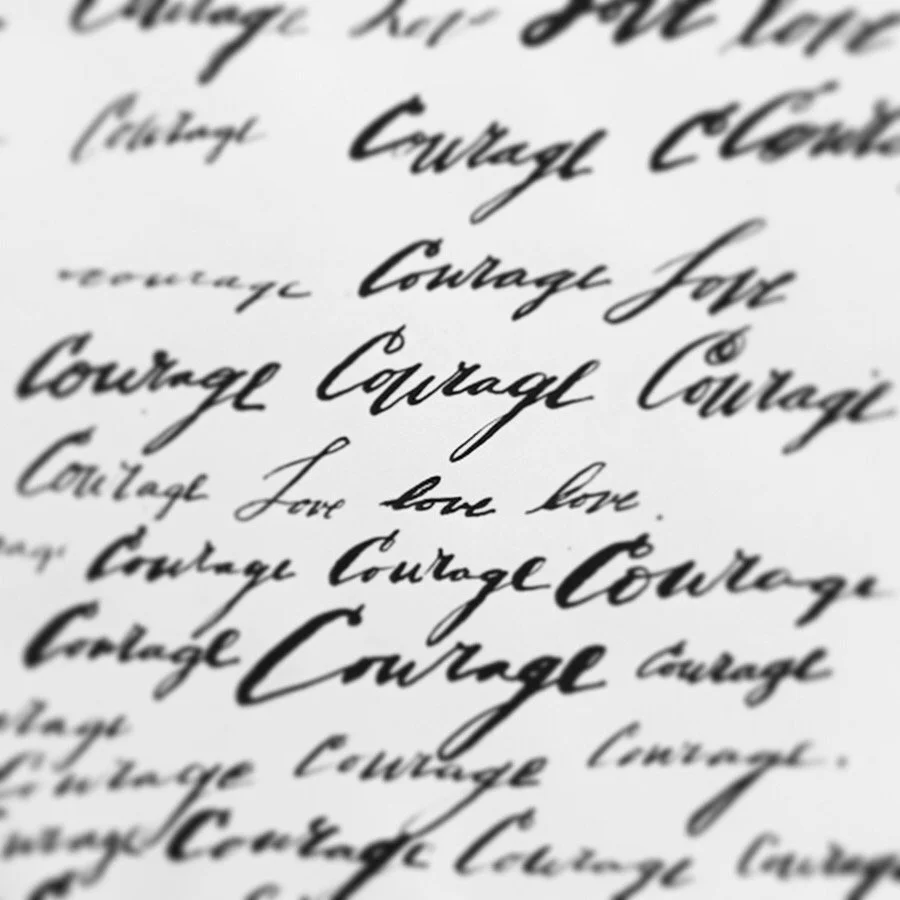 Courage love love love
Courage Courage C Coura
courage Courage Love
Courage Courage Courage
Courage Love love love.
rage Courage Courage Courage
Courage Courage Courage
urage
Courage Courage Courage.
ourage Courage Courage Courage